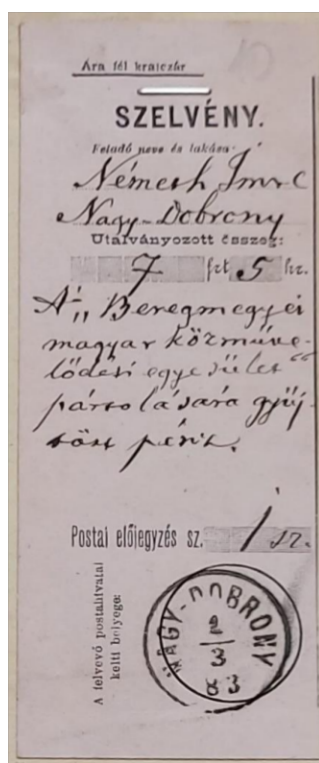 Ára fél krajczár
SZELVÉNY.
Feladó neve és lakása:
Németh Imre
Nagy-Dobrony
Utalványozott összeg:
7 frt 5 kr.
A „Beregmegyei
magyar közműve-
lődési egyesület"
pártolására gyűj-
tött pénz.
Postai előjegyzés sz. 1 sz.
A felvevő postahivatal
kelti bélyege:
NAGY-DOBRONY
2
3
83